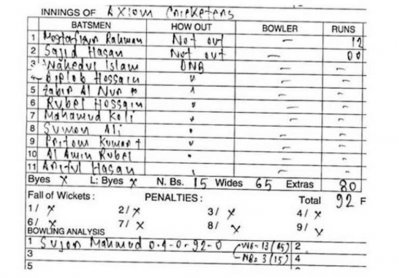 INNINGS OF Axiom Cricketers
BATSMEN HOW OUT BOWLER RUNS
1 Mostafizur Rahman Not out — 12
2 Sajid Hasan Not out — 00
3 Nahedul Islam DNB — —
4 Biplob Hossain " — —
5 Jabir Al Nur " — —
6 Rubel Hossain " — —
7 Mahamud Koli " — —
8 Sumon Ali " — —
9 Pritom Kumar " — —
10 Al Amin Rubel " — —
11 Ariful Hasan " — —
Byes x L: Byes x N. Bs. 15 Wides 65 Extras 80
Fall of Wickets: PENALTIES: Total 92 F
1/ x 2/ x 3/ x 4/ x
6/ x 7/ x 8/ x 9/ x
BOWLING ANALYSIS
1 Sujon Mahmud 0.4-0-92-0 WB-13(65) 2
3 NB-3(15) 4
5